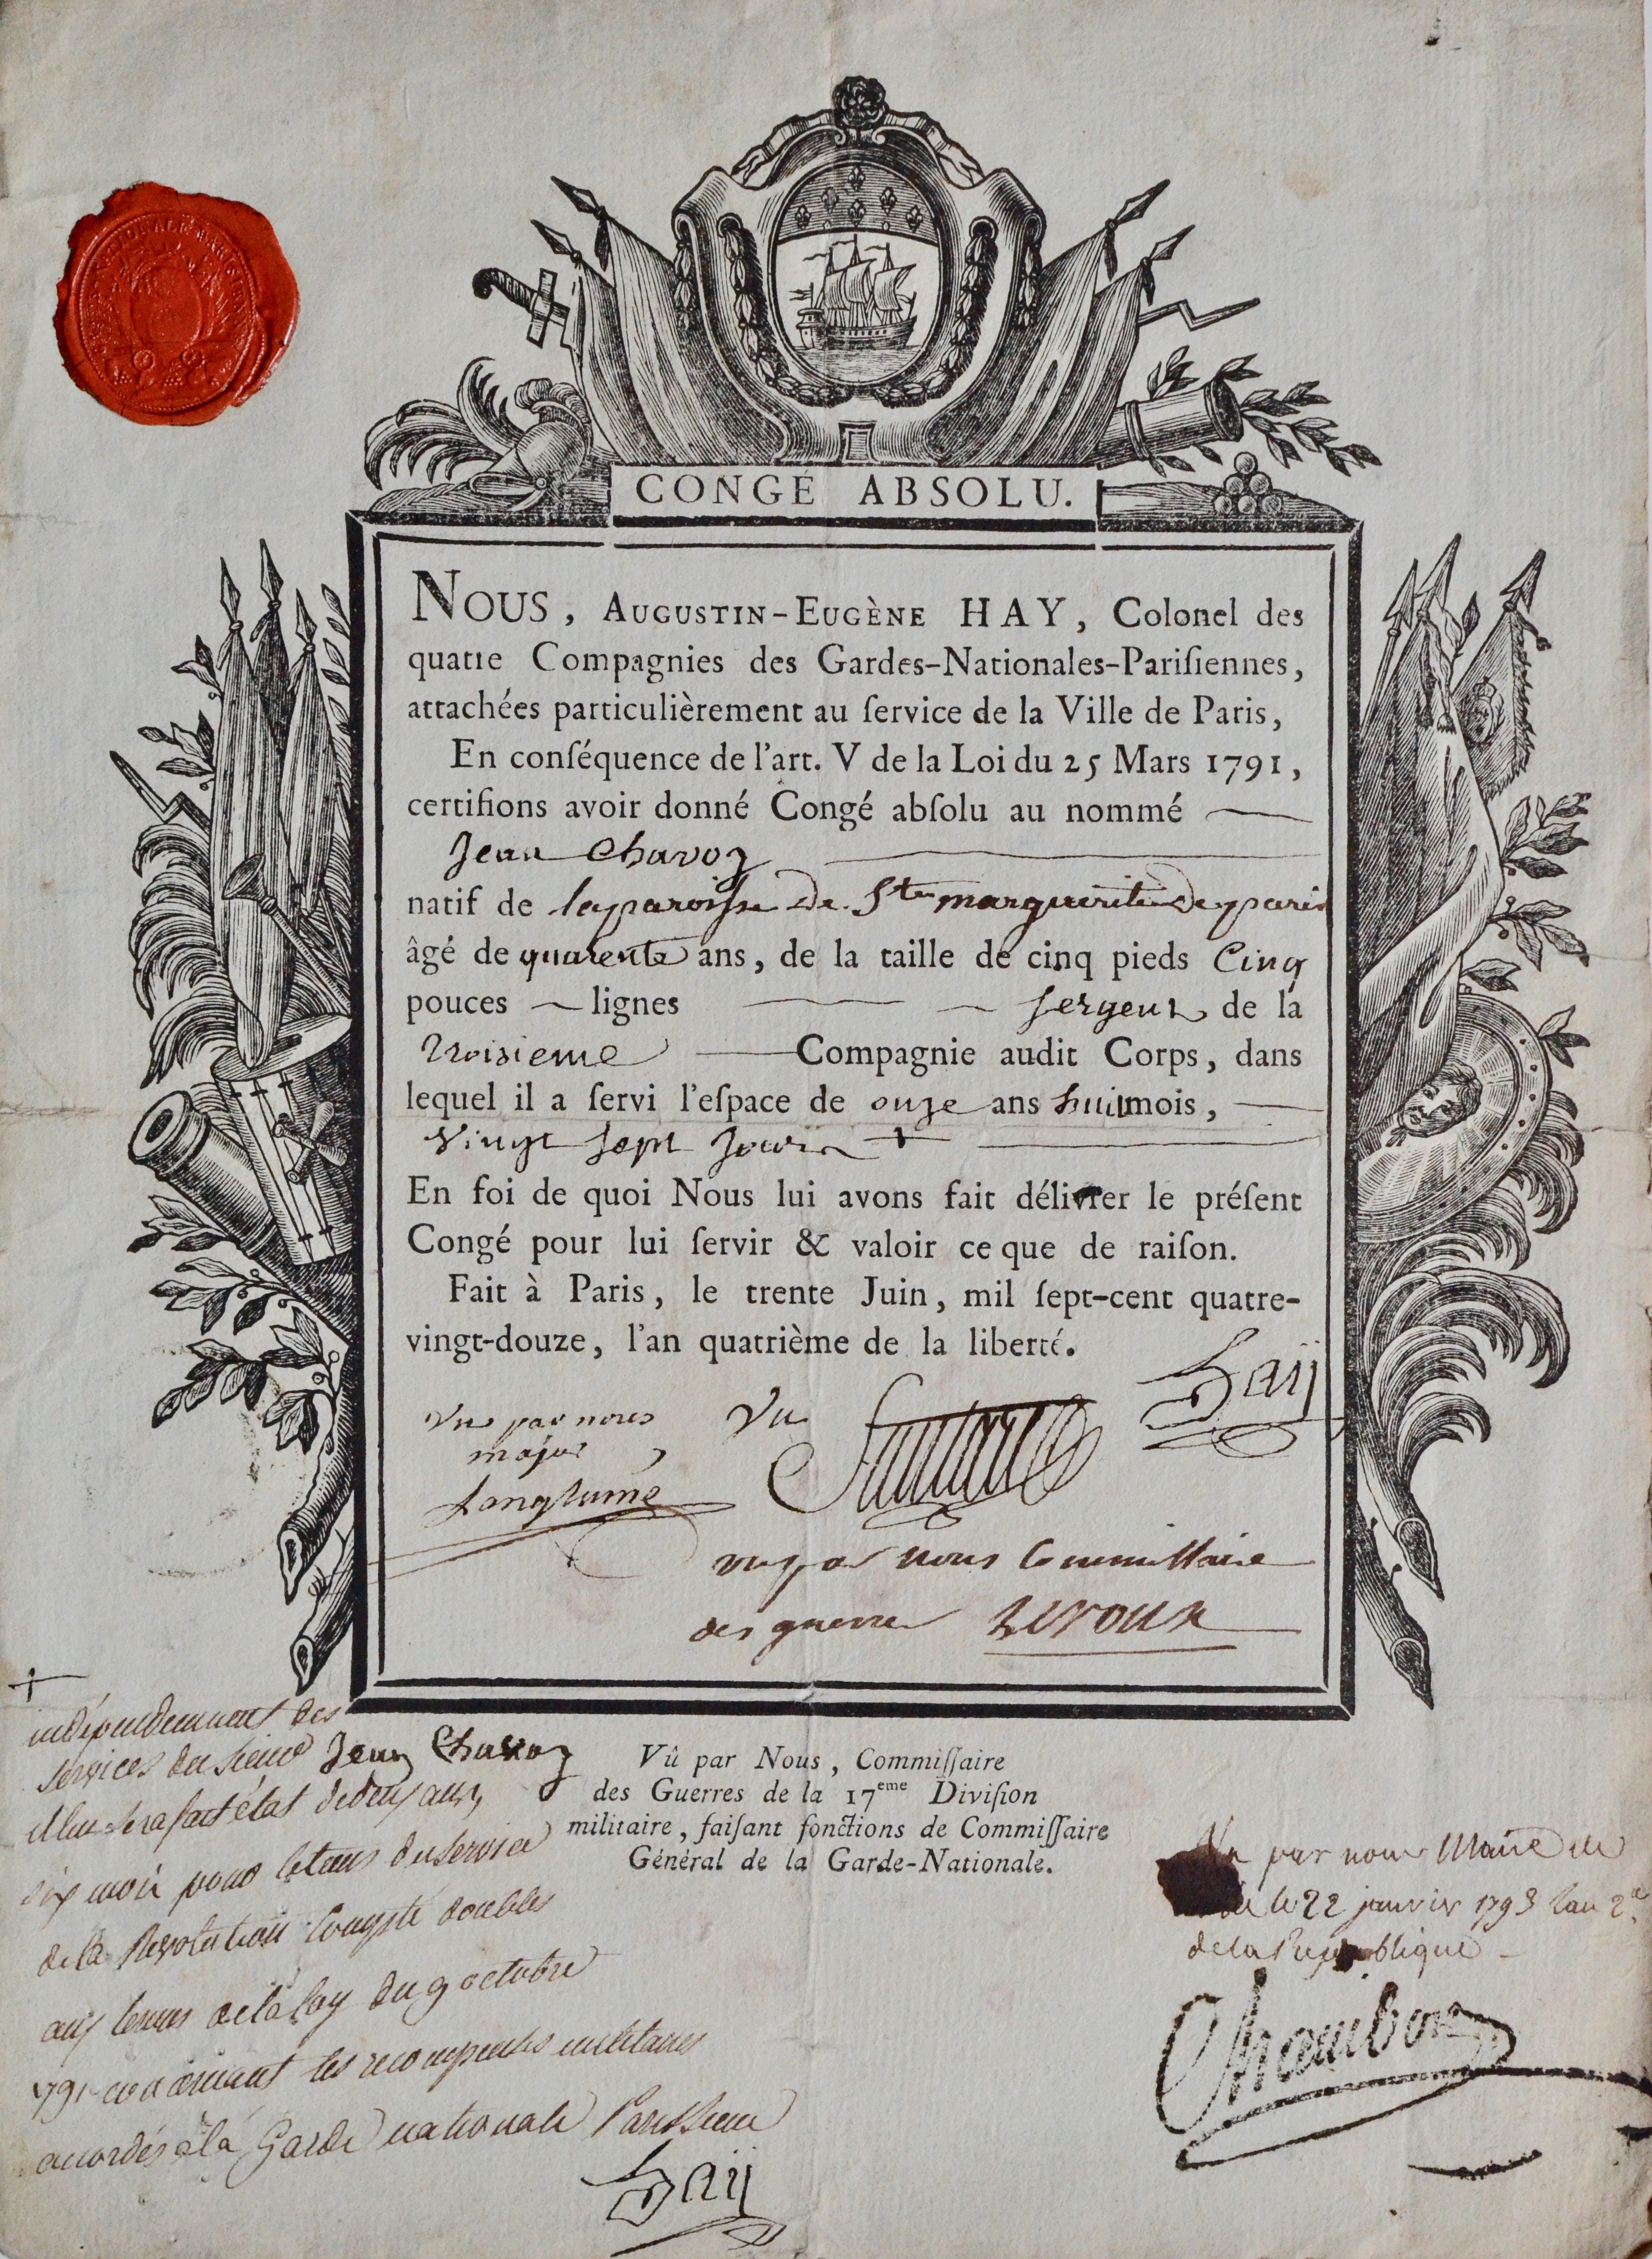 CONGÉ ABSOLU.
NOUS, AUGUSTIN-EUGÈNE HAY, Colonel des
quatre Compagnies des Gardes-Nationales-Pariſiennes,
attachées particulièrement au ſervice de la Ville de Paris,
En conſéquence de l'art. V de la Loi du 25 Mars 1791,
certifions avoir donné Congé abſolu au nommé
Jean Chavoz
natif de la paroisse de Ste marguerite de paris
âgé de quarente ans, de la taille de cinq pieds Cinq
pouces lignes sergent de la
troisieme Compagnie audit Corps, dans
lequel il a ſervi l'eſpace de onze ans huit mois,
Vingt sept jours +
En foi de quoi Nous lui avons fait délivrer le préſent
Congé pour lui ſervir & valoir ce que de raiſon.
Fait à Paris, le trente Juin, mil ſept-cent quatre-
vingt-douze, l'an quatrième de la liberté.
Haÿ
Vu par nous Vu
major
Langlumé
vu par nous Commissaire
des guerres Leroux
+
independemment des
services du sieur Jean Chavoz
il lui sera fait état de deux ans,
six mois pour le tems du service
de la Revolution compté doubles
aux termes de la loy du 9 octobre
1791 concernant les recompenses militaires
accordés à la Garde nationale Parisienne
Haÿ
Vû par Nous, Commiſſaire
des Guerres de la 17eme Diviſion
militaire, faiſant fonctions de Commiſſaire
Général de la Garde-Nationale.
Vu par nous Maire de
le 22 janvier 1793 l'an 2e
de la Republique
Chambon